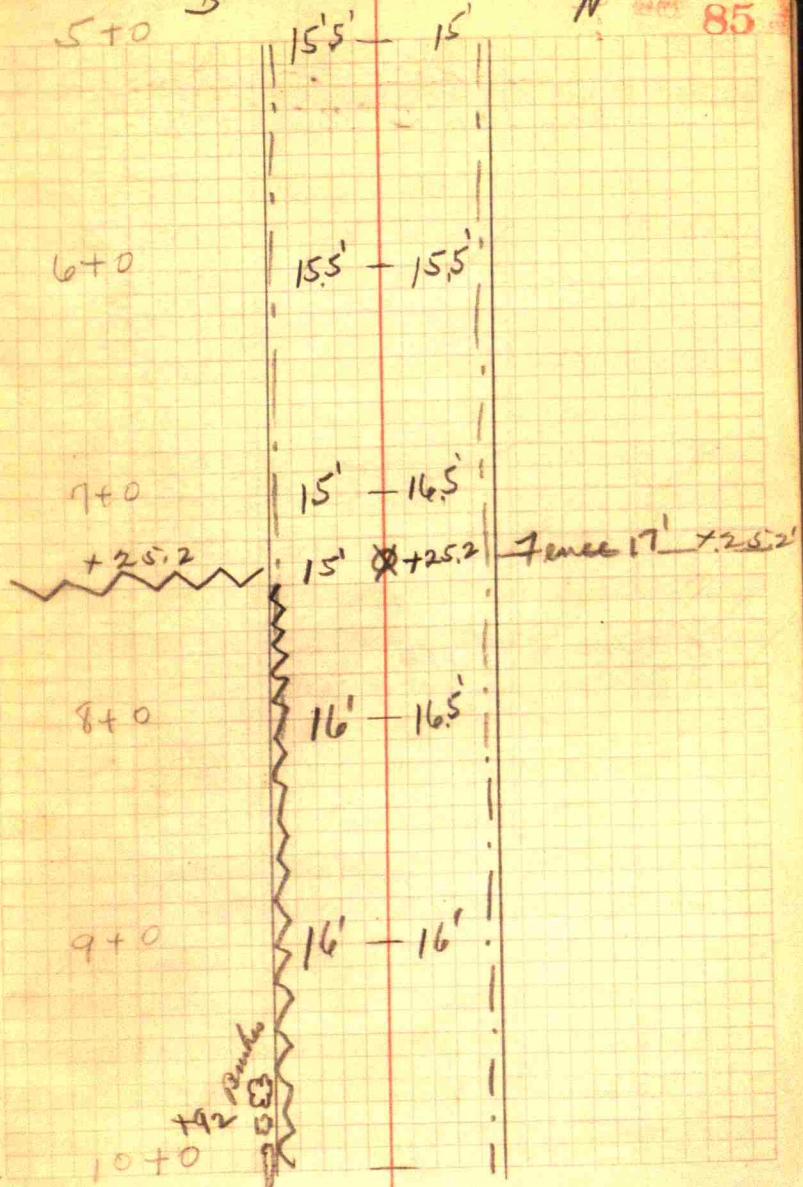 S N 85
5+0 15'5' — 15'
6+0 15.5' — 15.5'
7+0 15' — 16.5'
+25.2 15' +25.2 Fence 17' +25.2'
8+0 16' — 16.5'
9+0 16' — 16'
+92
10+0